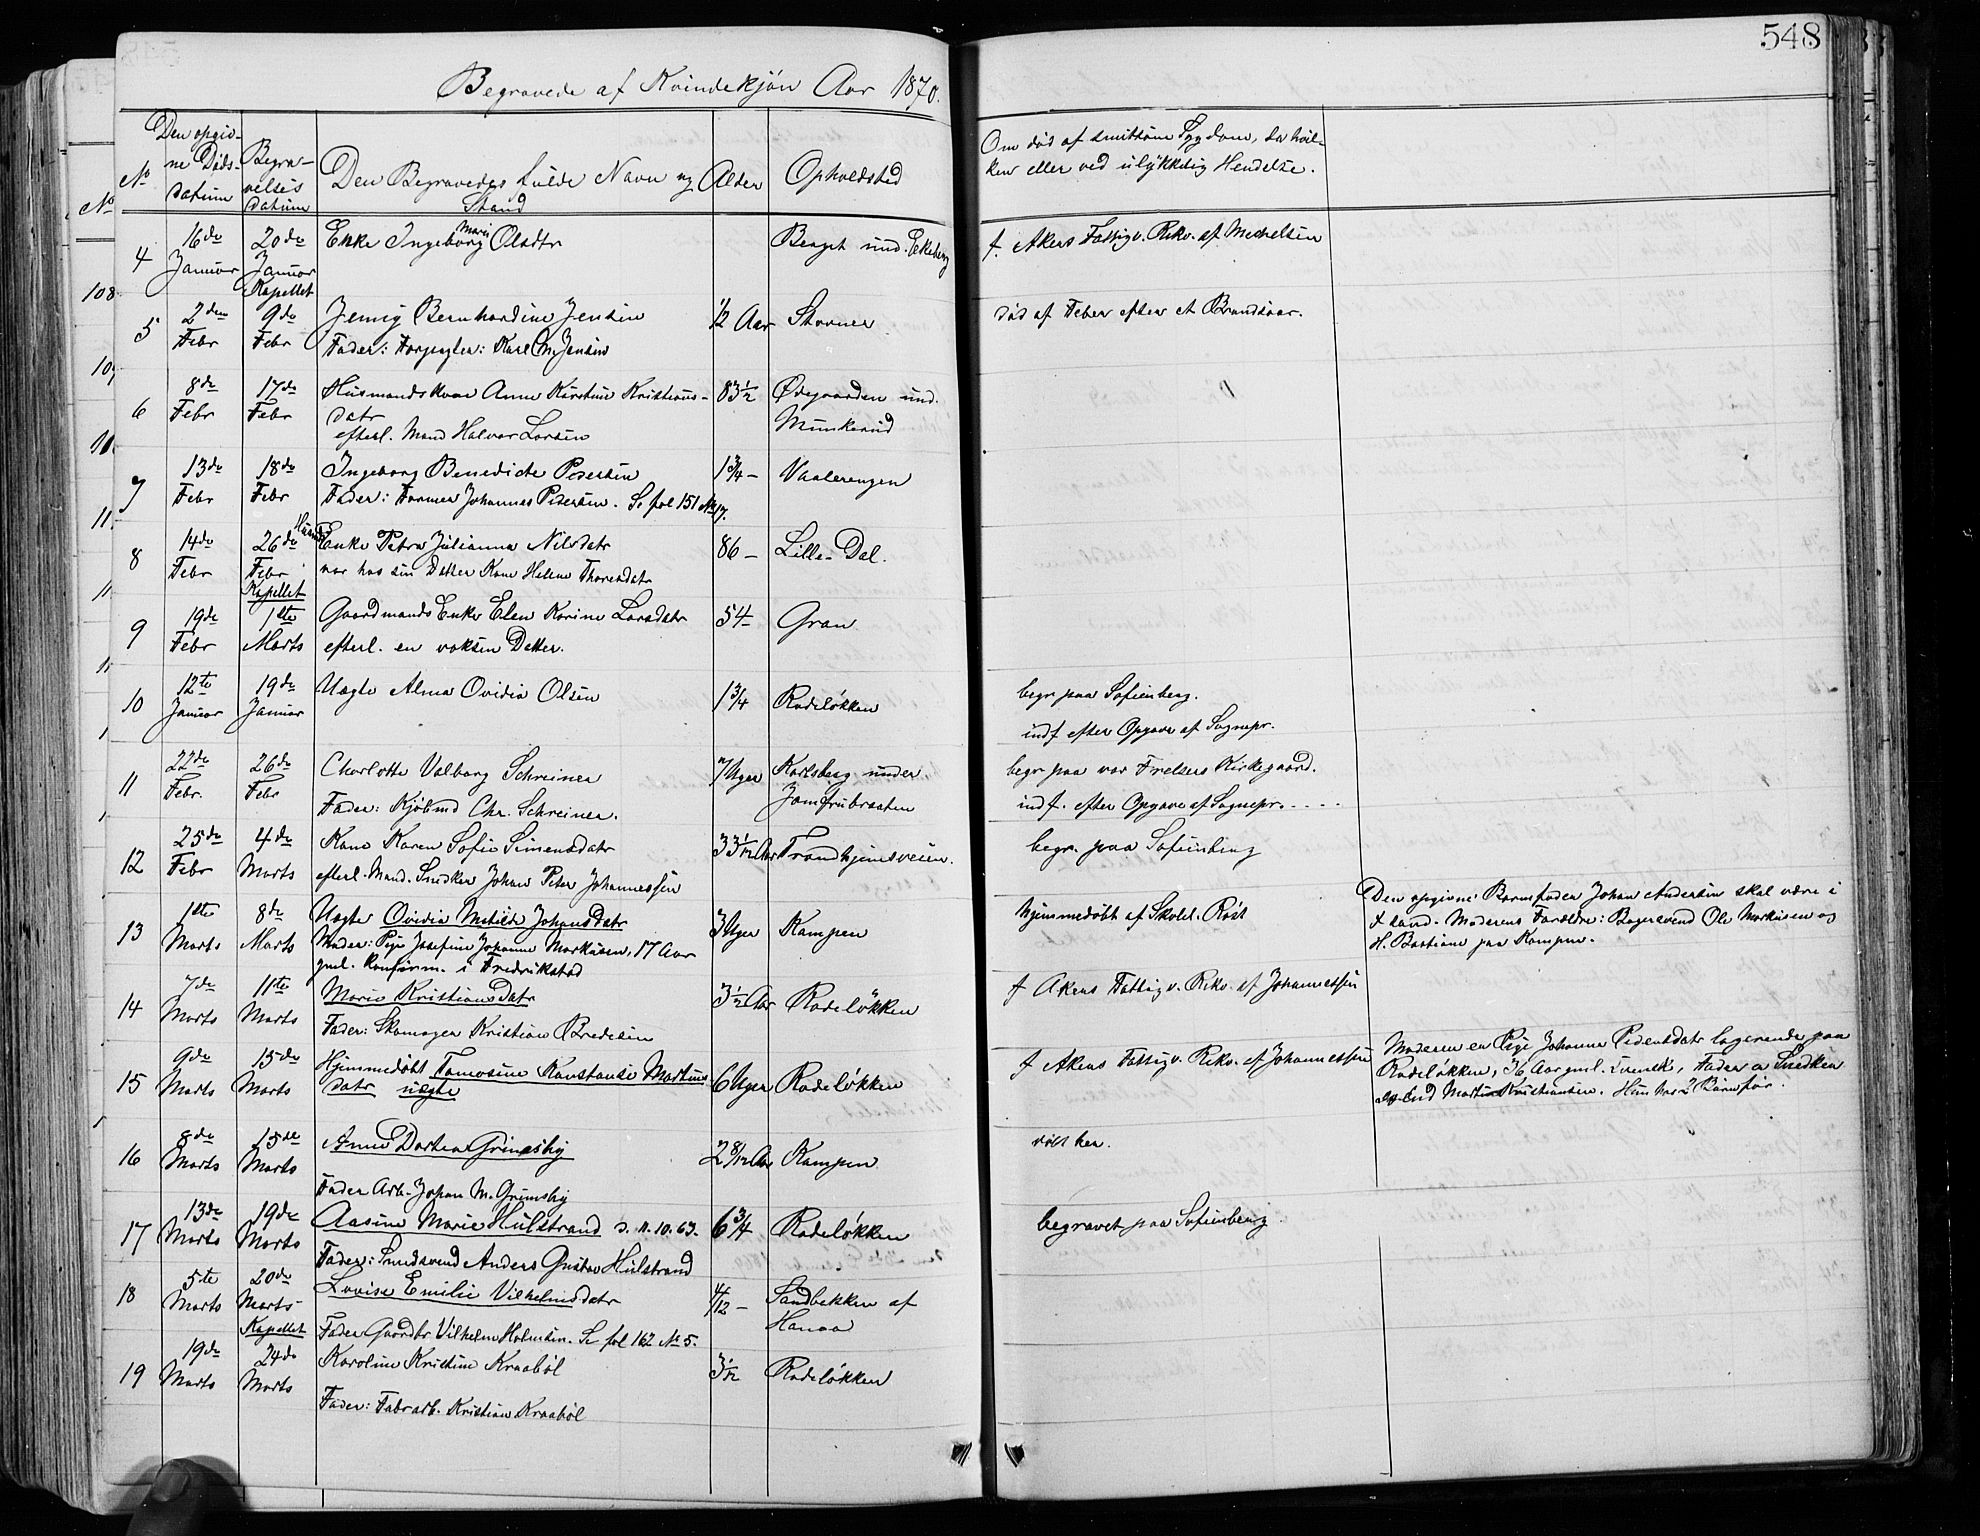 548
Begravede af Kvindekjön Aar 1870.
No
Den opgiv-
ne Döds-
datum
Begra-
velses
datum
Den Begravedes fulde Navn og
Stand
Alder
Opholdsted
Om död af smitsom Sygdom, da hvil-
ken eller ved ulykkelig Hendelse.
4
16de Januar
20de Januar Kapellet
Enke Ingeborg Marie Olsdtr
Berget und. Ekeberg
f. Akers Fattigv. Rekv. af Michelsen
5
2den Febr
9de Febr
Jenny Bernhardine Jensen
Fader: Forpagter: Karl M. Jensen
1/2 Aar
Stovner
död af Feber efter et Brandsaar.
6
8de Febr
17de Febr
Husmandskone Anne Kirstine Kristians-
datr
efterl. Mand Halvor Larsen
83 1/2
Ødegaarden und.
Munkerud
7
13de Febr
18de Febr
Ingeborg Benedicte Petersen
Fader: Former Johannes Petersen. Se fol 151 No 17.
1 3/4 -
Vaalerengen
8
14de Febr
26de Febr Kapellet
Husmds Enke Petra Julianna Nilsdatr
var hos sin Datter Kone Helene Thoresdatr
86 -
Lille-Dal.
9
19de Febr
1ste Marts
Gaardmands Enke Elen Karine Larsdatr
efterl. en voksen Datter.
54 -
Gran
10
12te Januar
19de Januar
Uægte Alma Ovidia Olsen
1 3/4
Rodeløkken
begr paa Sofienberg.
indf efter Opgave af Sognepr.
11
22de Febr.
26de Febr
Charlotte Valborg Schreiner
Fader: Kjöbmd Chr. Schreiner.
7 Uger
Karlsberg under
Jomfrubraaten
begr paa vor Frelsers Kirkegaard.
indf. efter Opgave af Sognepr. - - - -
12
25de Febr
4de Marts
Kone Karen Sofie Simensdatr
efterl. Mand. Snedker Johan Peter Johannessen
33 1/2 Aar
Trondhjemsveien.
begr. paa Sofienberg
13
1ste Marts
8de Marts
Uægte Ovidia Matilde Johansdatr
Moder: Pige Josefine Johanne Markusen, 17 Aar
gml. konfirm. i Fredrikstad
3 Uger
Kampen
hjemmedöbt af Skolel. Röst
Den opgivne Barnefader Johan Andersen skal være i
Moderens Forældre: Bagersvend Ole Markusen og
H. Bastiane paa Kampen.
14
7de Marts
11te Marts
Marie Kristiansdatr
Fader: Skomager Kristian Bredesen
3 1/2 Aar
Rodeløkken
f Akers Fattigv. Rekv. af Johannessen
15
9de Marts
15de Marts
Hjemmedöbt Tomosine Konstanse Martins
datr uægte
6 Uger
Rodeløkken
f Akers Fattigv. Rekv. af Johannessen
Moderen en Pige Johanne Pedersdatr logerende paa
Rodeløkken, 36 Aar gml. Svensk, Fader a Snedker
svend Martin Kristiansen. Hun har 2 Börn för.
16
8de Marts
15de Marts
Anne Dortea Grimsby
Fader Arb. Johan M. Grimsby
2 8/12 Aar
Kampen
17
13de Marts
19de Marts
Aasine Marie Hulstrand d. 11.10.63.
Fader: Smedsvend Anders Gustav Hulstrand
6 3/4
Rodeløkken
begravet paa Sofienberg
18
5te Marts
20de Marts Kapellet
Lovise Emilie Vilhelmsdatr
Fader Gaardbr Vilhelm Holmsen. Se fol 162 No 5.
4/12 -
Sandbekken af
19
19de Marts
24de Marts
Karoline Kristine Kraabøl
Fader: Fabrarb. Kristian Kraabøl
3/12
Rodeløkken